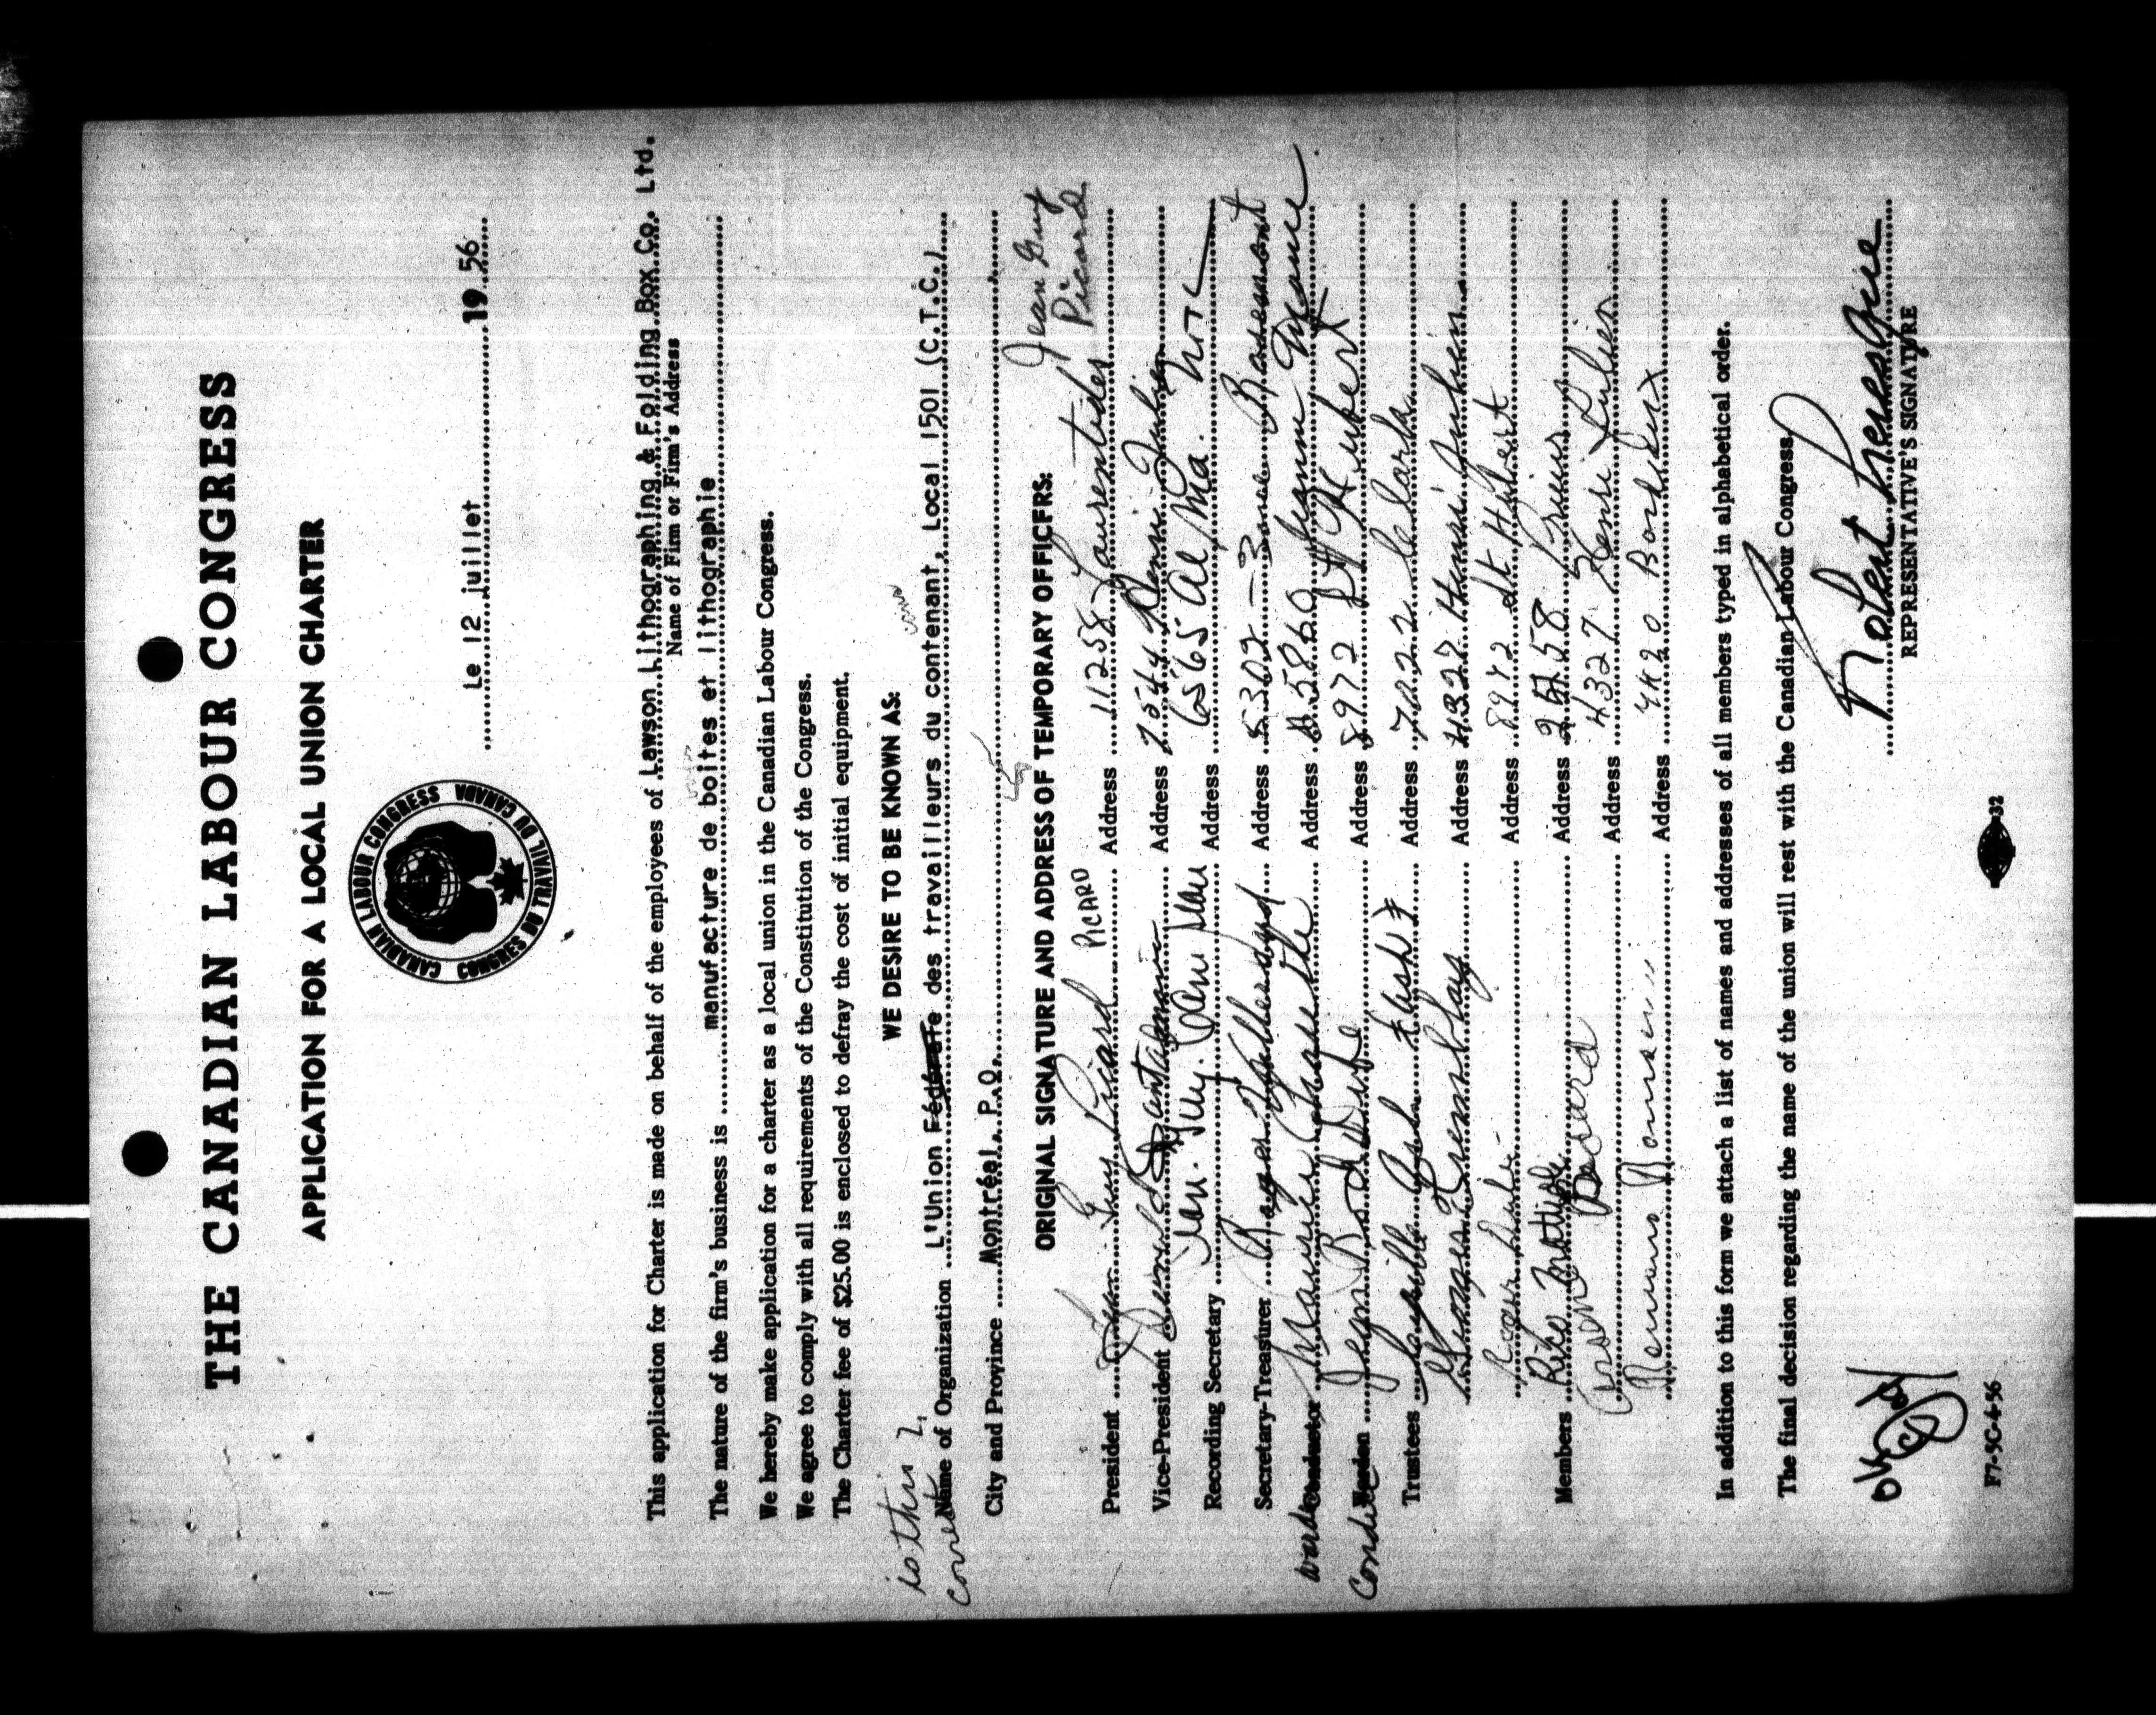 THE CANADIAN LABOUR CONGRESS
APPLICATION FOR A LOCAL UNION CHARTER
CANADIAN LABOUR CONGRESS
CONGRÈS DU TRAVAIL DU CANADA
Le 12 juillet 19 56
This application for Charter is made on behalf of the employees of Lawson Lithographing & Folding Box Co. Ltd.
Name of Firm or Firm's Address
The nature of the firm's business is manufacture de boites et lithographie
We hereby make application for a charter as a local union in the Canadian Labour Congress.
We agree to comply with all requirements of the Constitution of the Congress.
The Charter fee of $25.00 is enclosed to defray the cost of initial equipment.
WE DESIRE TO BE KNOWN AS:
is this
correct?
Name of Organization L'Union Fédérale des travailleurs du contenant, Local 1501 (C.T.C.)
City and Province Montréal, P.Q.
ORIGINAL SIGNATURE AND ADDRESS OF TEMPORARY OFFICERS:
Jean Guy
Picard
PICARD
President Jean Guy Picard Address 11258 Laurentides
Vice-President Address 7544 Henri Julien
Recording Secretary Address 6565 Alma
Secretary-Treasurer Roger Address 5302 - 3 Rosemont
Warden Conductor Maurice Address 5860 Jeanne Mance
Conductor Warden Jean Address 8972 St Hubert
Trustees Address 7022
Georges Tremblay Address 4327 Henri Julien
Roger Address 8972 St Hubert
Members Rita Address 2458
Address 4327 Henri Julien
Address 4420 Bordeaux
In addition to this form we attach a list of names and addresses of all members typed in alphabetical order.
The final decision regarding the name of the union will rest with the Canadian Labour Congress.
OK
REPRESENTATIVE'S SIGNATURE
F7-5C-4-56
32